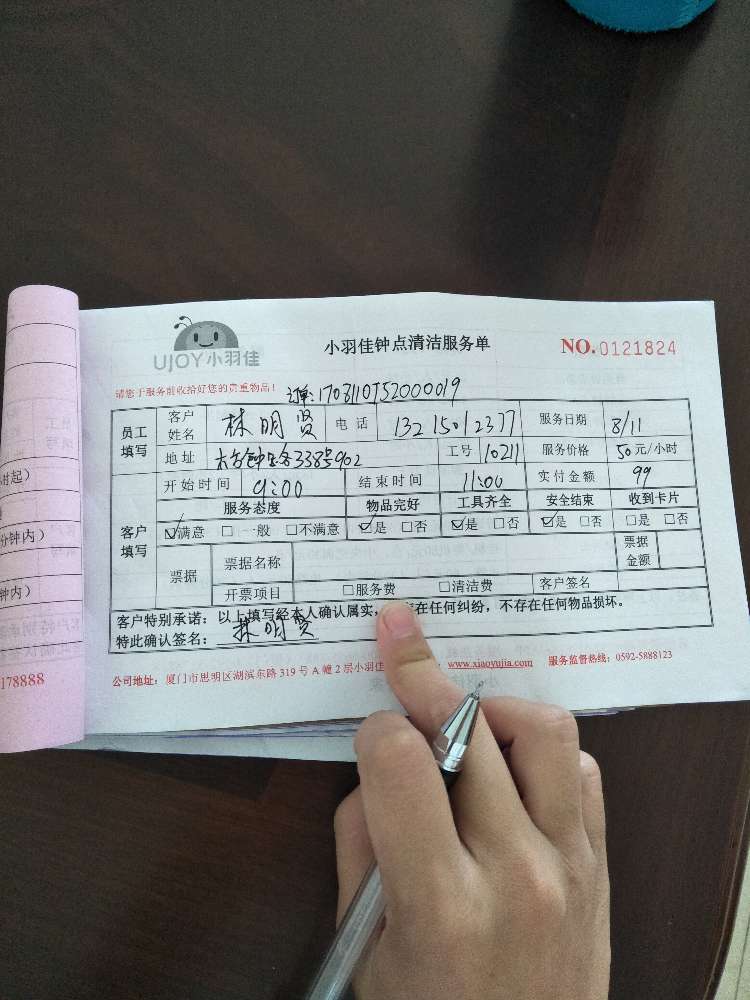 UJOY小羽佳
小羽佳钟点清洁服务单
NO.0121824
请您于服务前收拾好您的贵重物品！
订单:
员工填写 客户姓名 林明贤 电话 13215012377 服务日期 8/11
地址 338号902 工号 10211 服务价格 50元/小时
客户填写 开始时间 9:00 结束时间 11:00 实付金额 99
服务态度 物品完好 工具齐全 安全结束 收到卡片
☑满意 □一般 □不满意 ☑是 □否 ☑是 □否 ☑是 □否 □是 □否
票据 票据名称 票据金额
开票项目 □服务费 □清洁费 客户签名
客户特别承诺：以上填写经本人确认属实，在任何纠纷，不存在任何物品损坏。
特此确认签名： 林明贤
公司地址：厦门市思明区湖滨东路319号A幢2层小羽佳 www.xiaoyujia.com 服务监督热线：0592-5888123
时起）
分钟内）
钟内）
178888